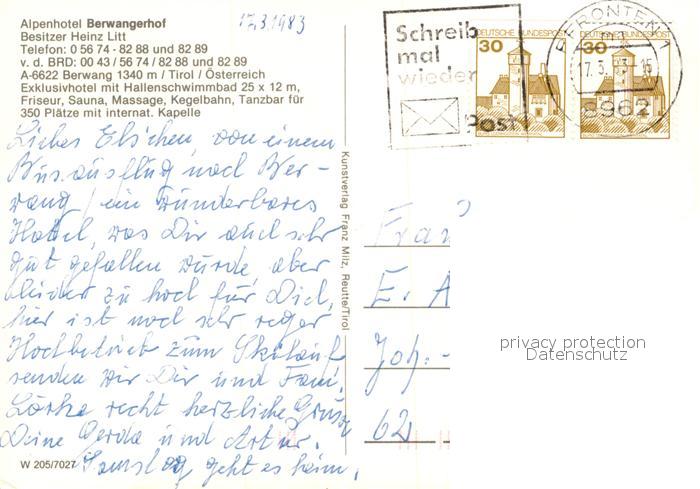 Alpenhotel Berwangerhof
Besitzer Heinz Litt
Telefon: 0 56 74 - 82 88 und 82 89
v. d. BRD: 00 43 / 56 74 / 82 88 und 82 89
A-6622 Berwang 1340 m / Tirol / Österreich
Exklusivhotel mit Hallenschwimmbad 25 x 12 m,
Friseur, Sauna, Massage, Kegelbahn, Tanzbar für
350 Plätze mit internat. Kapelle
17.3.1983
Liebes Els'chen, von einem
Busausflug nach Ber-
wang, ein wunderbares
Hotel, was Dir auch sehr
gut gefallen würde, aber
leider zu hoch für Dich,
hier ist noch sehr reger
Hochbetrieb zum Skilauf
senden wir Dir und Fam.
recht herzliche Grüsse
Deine Gerda und Artur.
Samstag geht es heim.
W 205/7027
Kunstverlag Franz Milz, Reutte/Tirol
Schreib
mal
wieder
Post
DEUTSCHE BUNDESPOST
30
DEUTSCHE BUNDESPOST
30
PFRONTEN 1
17.3.83-15
8962
Frau
E. A
Joh.-
62
privacy protection
Datenschutz